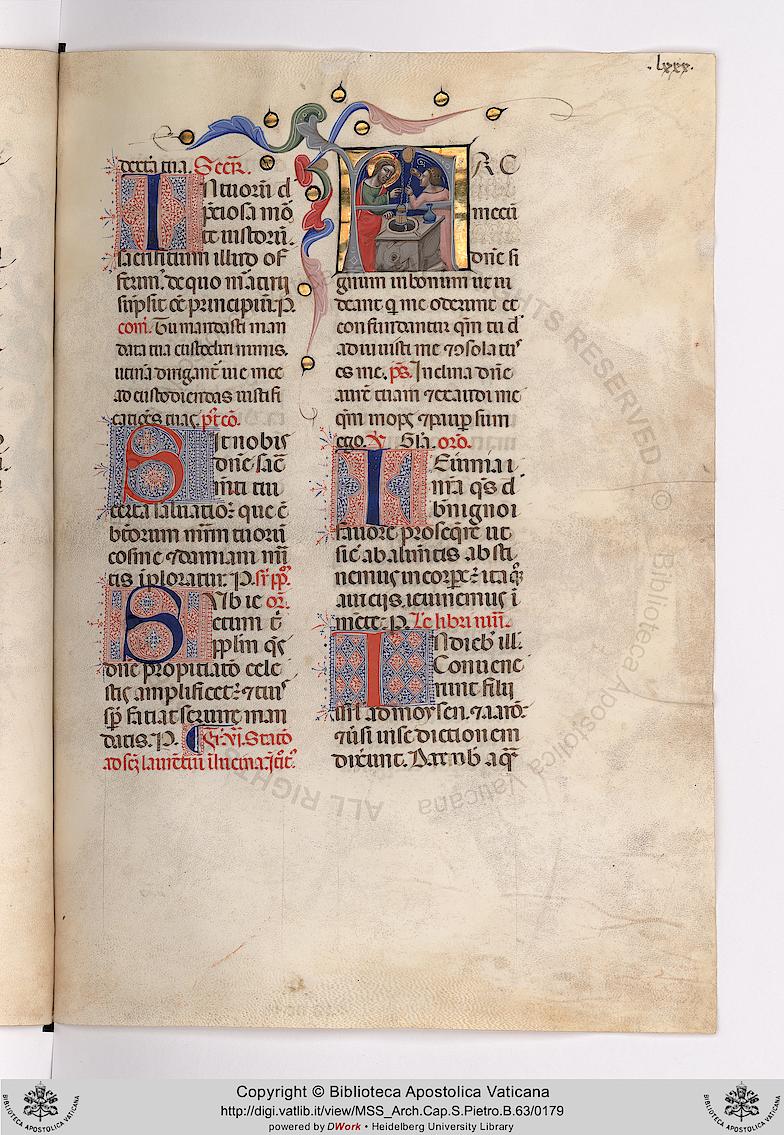 .lxxx.
dextera tua. Secr.
In tuorum d
preciosa mo
te iustorum
sacrificium illud of
ferimus de quo martirium
sumpsit omne principium. P.
com. Tu mandasti man
data tua custodiri nimis.
utinam dirigantur vie mee
ad custodiendas iustifi
cationes tuas. ptco.
Sit nobis
domine sac
mentum tuum
certa salvatio: que c
beatorum martirum tuorum
cosme et damiani meri
tis imploratur. P. sr ppl.
Subie or.
ctum tibi
populum qs
domine propitiatio cele
stis amplificet: et tuis
semper faciat servire man
datis. P. Fr. VI. Statio
ad scm laurentium in lucina. Introit.
FAC
mecum
domine si
gnum in bonum ut vi
deant qui me oderunt et
confundantur quoniam tu d
adiuvisti me et consolatus
es me. ps. Inclina domine
aurem tuam et exaudi me
quoniam inops et pauper sum
ego. V. Gla. oro.
Ieiunia
nostra qs d
benigno
favore prosequere ut
sicut ab alimentis absti
nemus in corpore: ita a
viciis ieiunemus in
mente. P. Le libri num.
In dieb ill.
Convene
runt filij
isrl ad moysen. et aaron.
et versi in seditionem
dixerunt. Date nobis aquam
ALL RIGHTS RESERVED © Biblioteca Apostolica Vaticana
BIBLIOTECA APOSTOLICA VATICANA
Copyright © Biblioteca Apostolica Vaticana
http://digi.vatlib.it/view/MSS_Arch.Cap.S.Pietro.B.63/0179
powered by DWork • Heidelberg University Library
BIBLIOTECA APOSTOLICA VATICANA